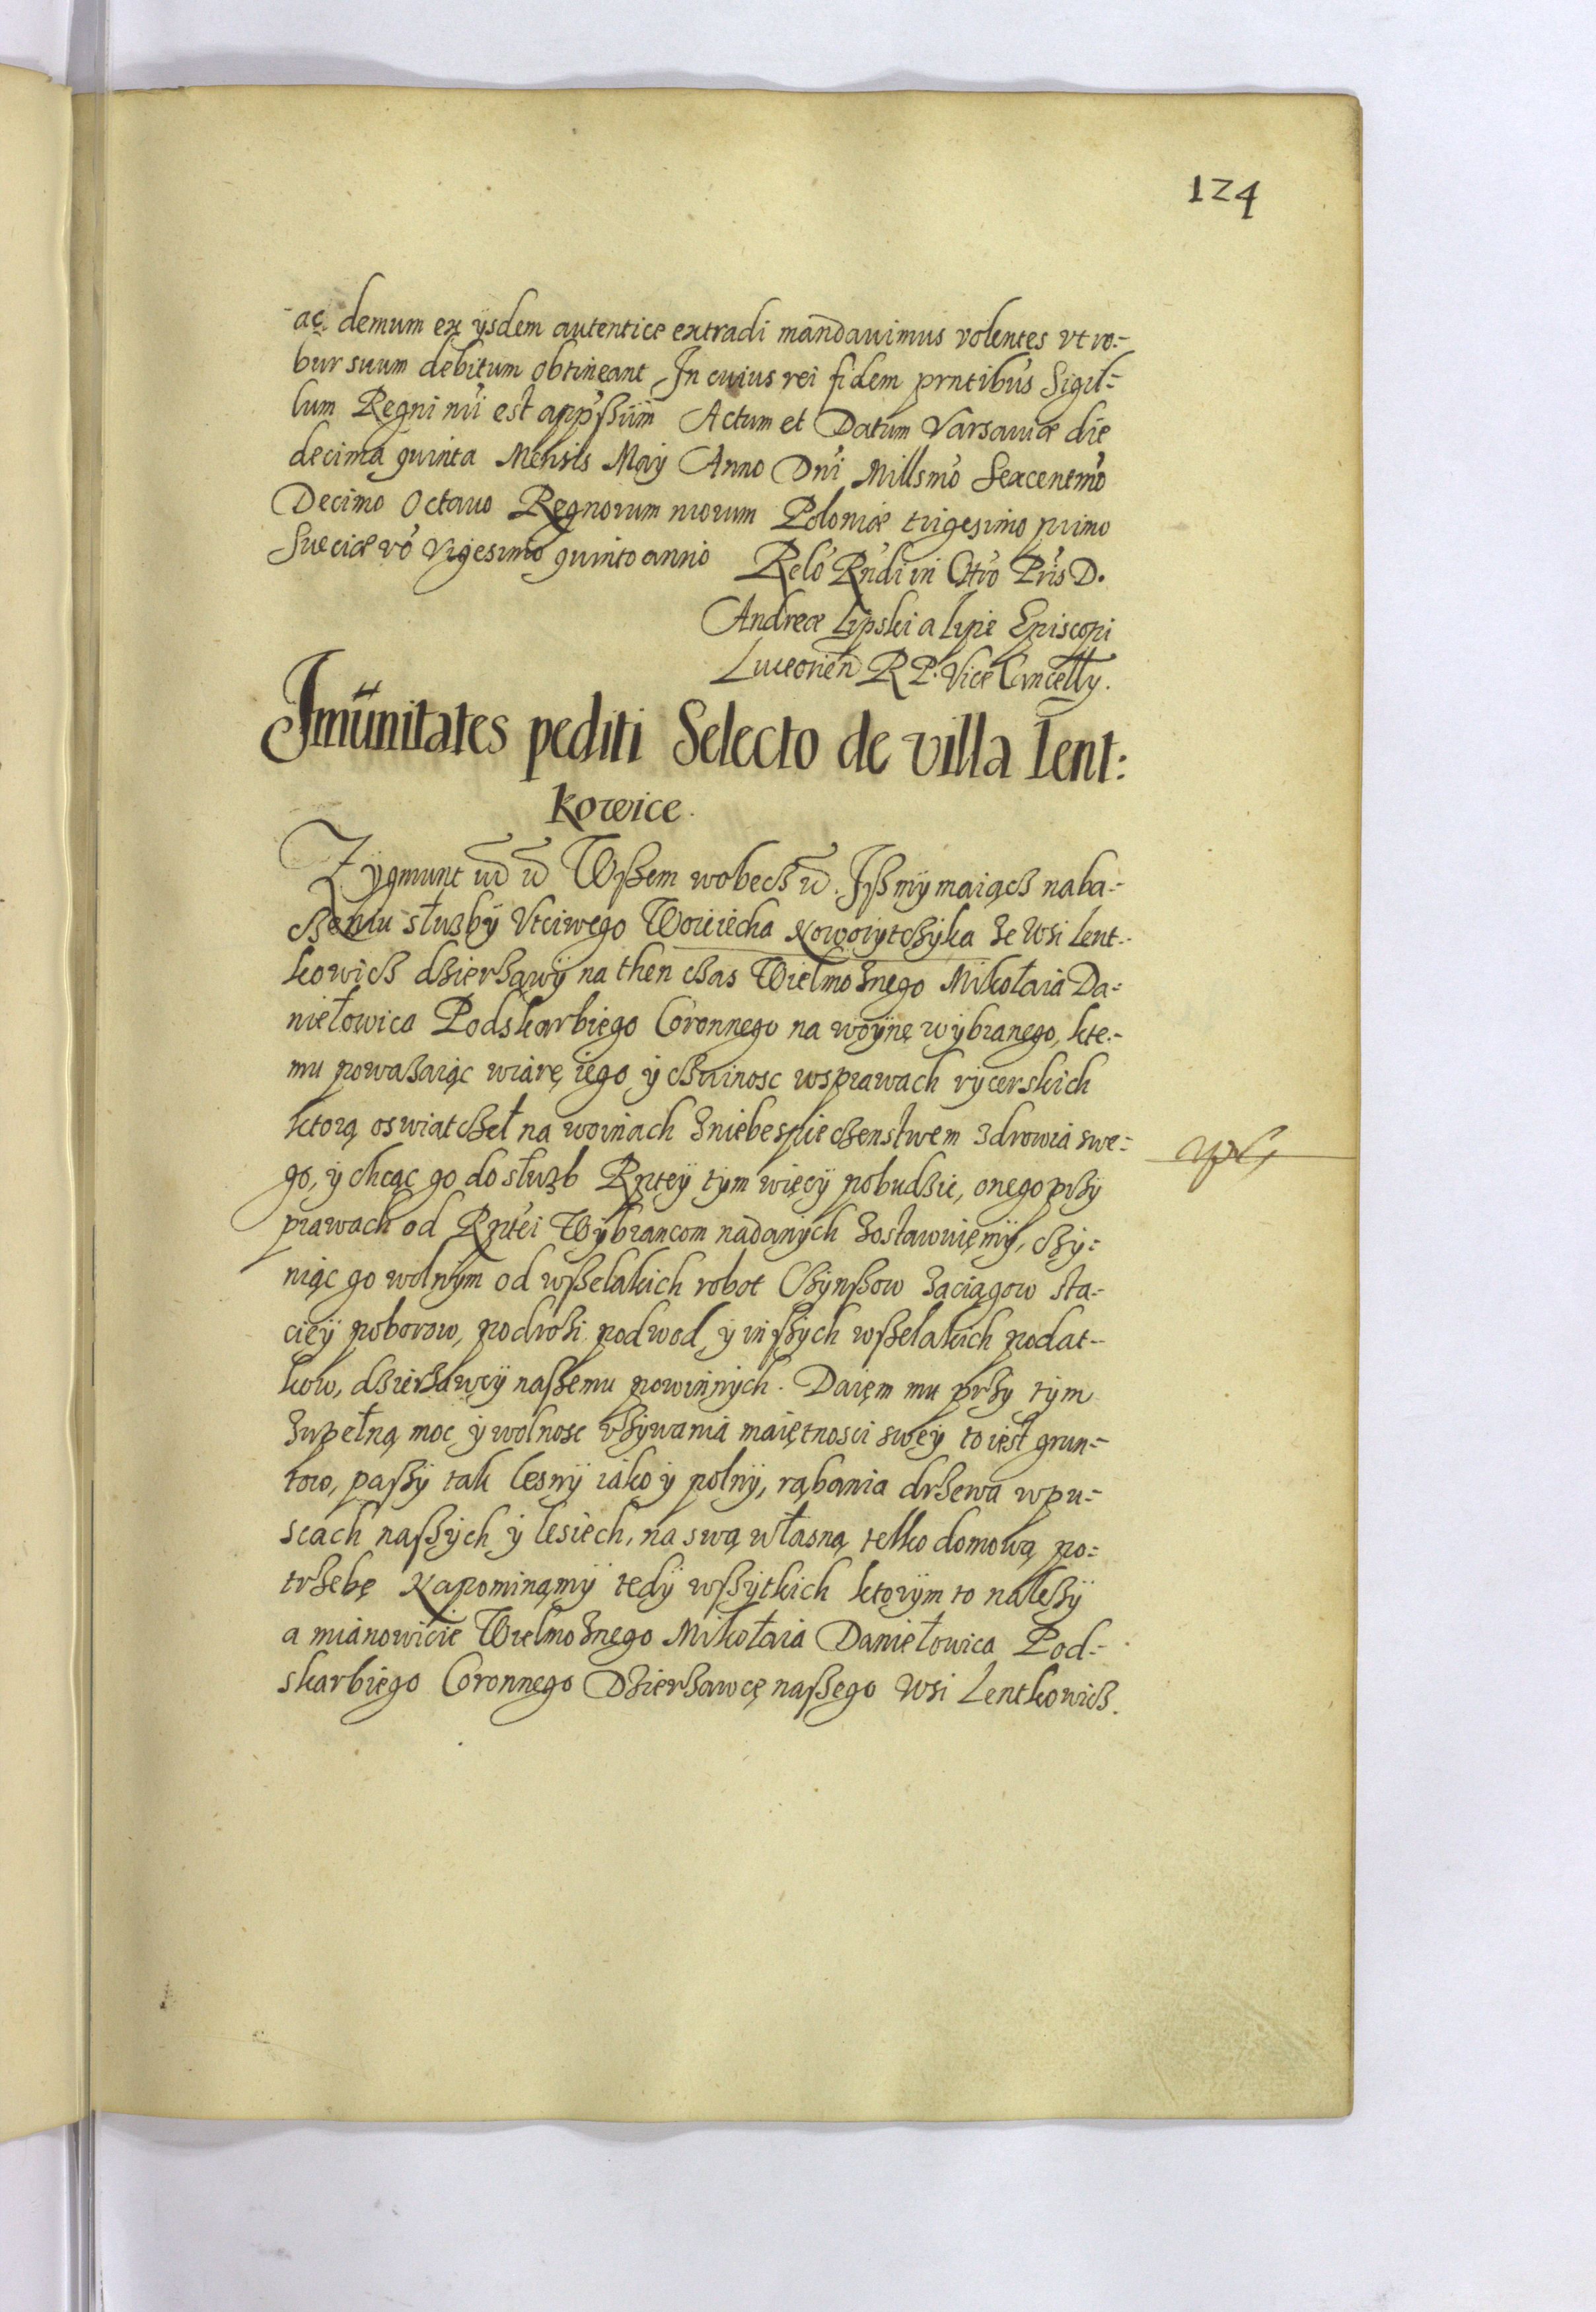 124
ac demum ex ijsdem autentice extradi mandauimus volentes vt ro-
bur suum debitum obtineant, In cuius rei fidem prntibus Sigil-
lum Regni nri est appssum Actum et Datum Varsauiæ die
decima quinta Mensis Maij Anno Dni Millsmo Sexcentmo
Decimo Octauo Regnorum nrorum Poloniæ trigesimo primo
Sueciæ vo Vigesimo quinto anno Relo Rndi in Chro Pris D.
Andreæ Lipski a Lipie Episcopi
Luceorien R P. Vice Cancelly.
Imunitates pediti Selecto de villa Lent:
kowice.
Zygmunt Wszem wobecz. Isz my maiącz naba-
czeniu służby Vtciwego Woiciecha Nowowytczyka ze Wsi Lent-
kowicz dzierżawy na then czas Wielmożnego Mikołaia Da-
niełowica Podskarbiego Coronnego na woynę wybranego, kte-
mu poważaiąc wiarę iego y czuinosc wsprawach rycerskich
ktorą oswiatczeł na woinach zniebespieczenstwem zdrowia swe-
go, y chcąc go do służb Rptey tym więcy pobudzic, onego przy
prawach od Rptei Wybrancom nadanych zostawuięmy, czy-
niąc go wolnym od wszelakich robot Czynszow zaciągow sta-
ciey poborow, podrozi podwod y inszych wszelakich podat-
kow, dzierżawcy naszemu powinnych. Daięm mu przy tym
zupełną moc y wolnosc vżywania maiętnosci swey to iest grun-
tow, paszy tak lesny iako y polny, rąbania drzewa wpu-
scach naszych y lesiech, na swą własną telko domową po-
trzebę Napominąmy tedy wszytkich ktorym to należy
a mianowicie Wielmożnego Mikołaia Daniełowica Pod-
skarbiego Coronnego Dzierżawcę naszego Wsi Lentkowicz.